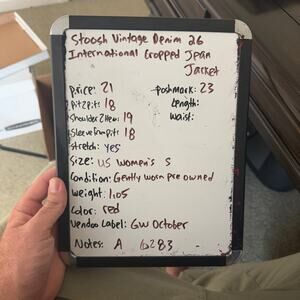 Stoosh Vintage Denim 26
International Cropped Jean
Jacket
price: 21
poshmark: 23
Pit2pit: 18
Length:
Shoulder2Hem: 19
waist:
Sleevefrompit: 18
stretch: yes
Size: US Women's S
Condition: Gently worn pre owned
Weight: 1.05
Color: red
Vendoo Label: GW October
Notes: A 10283